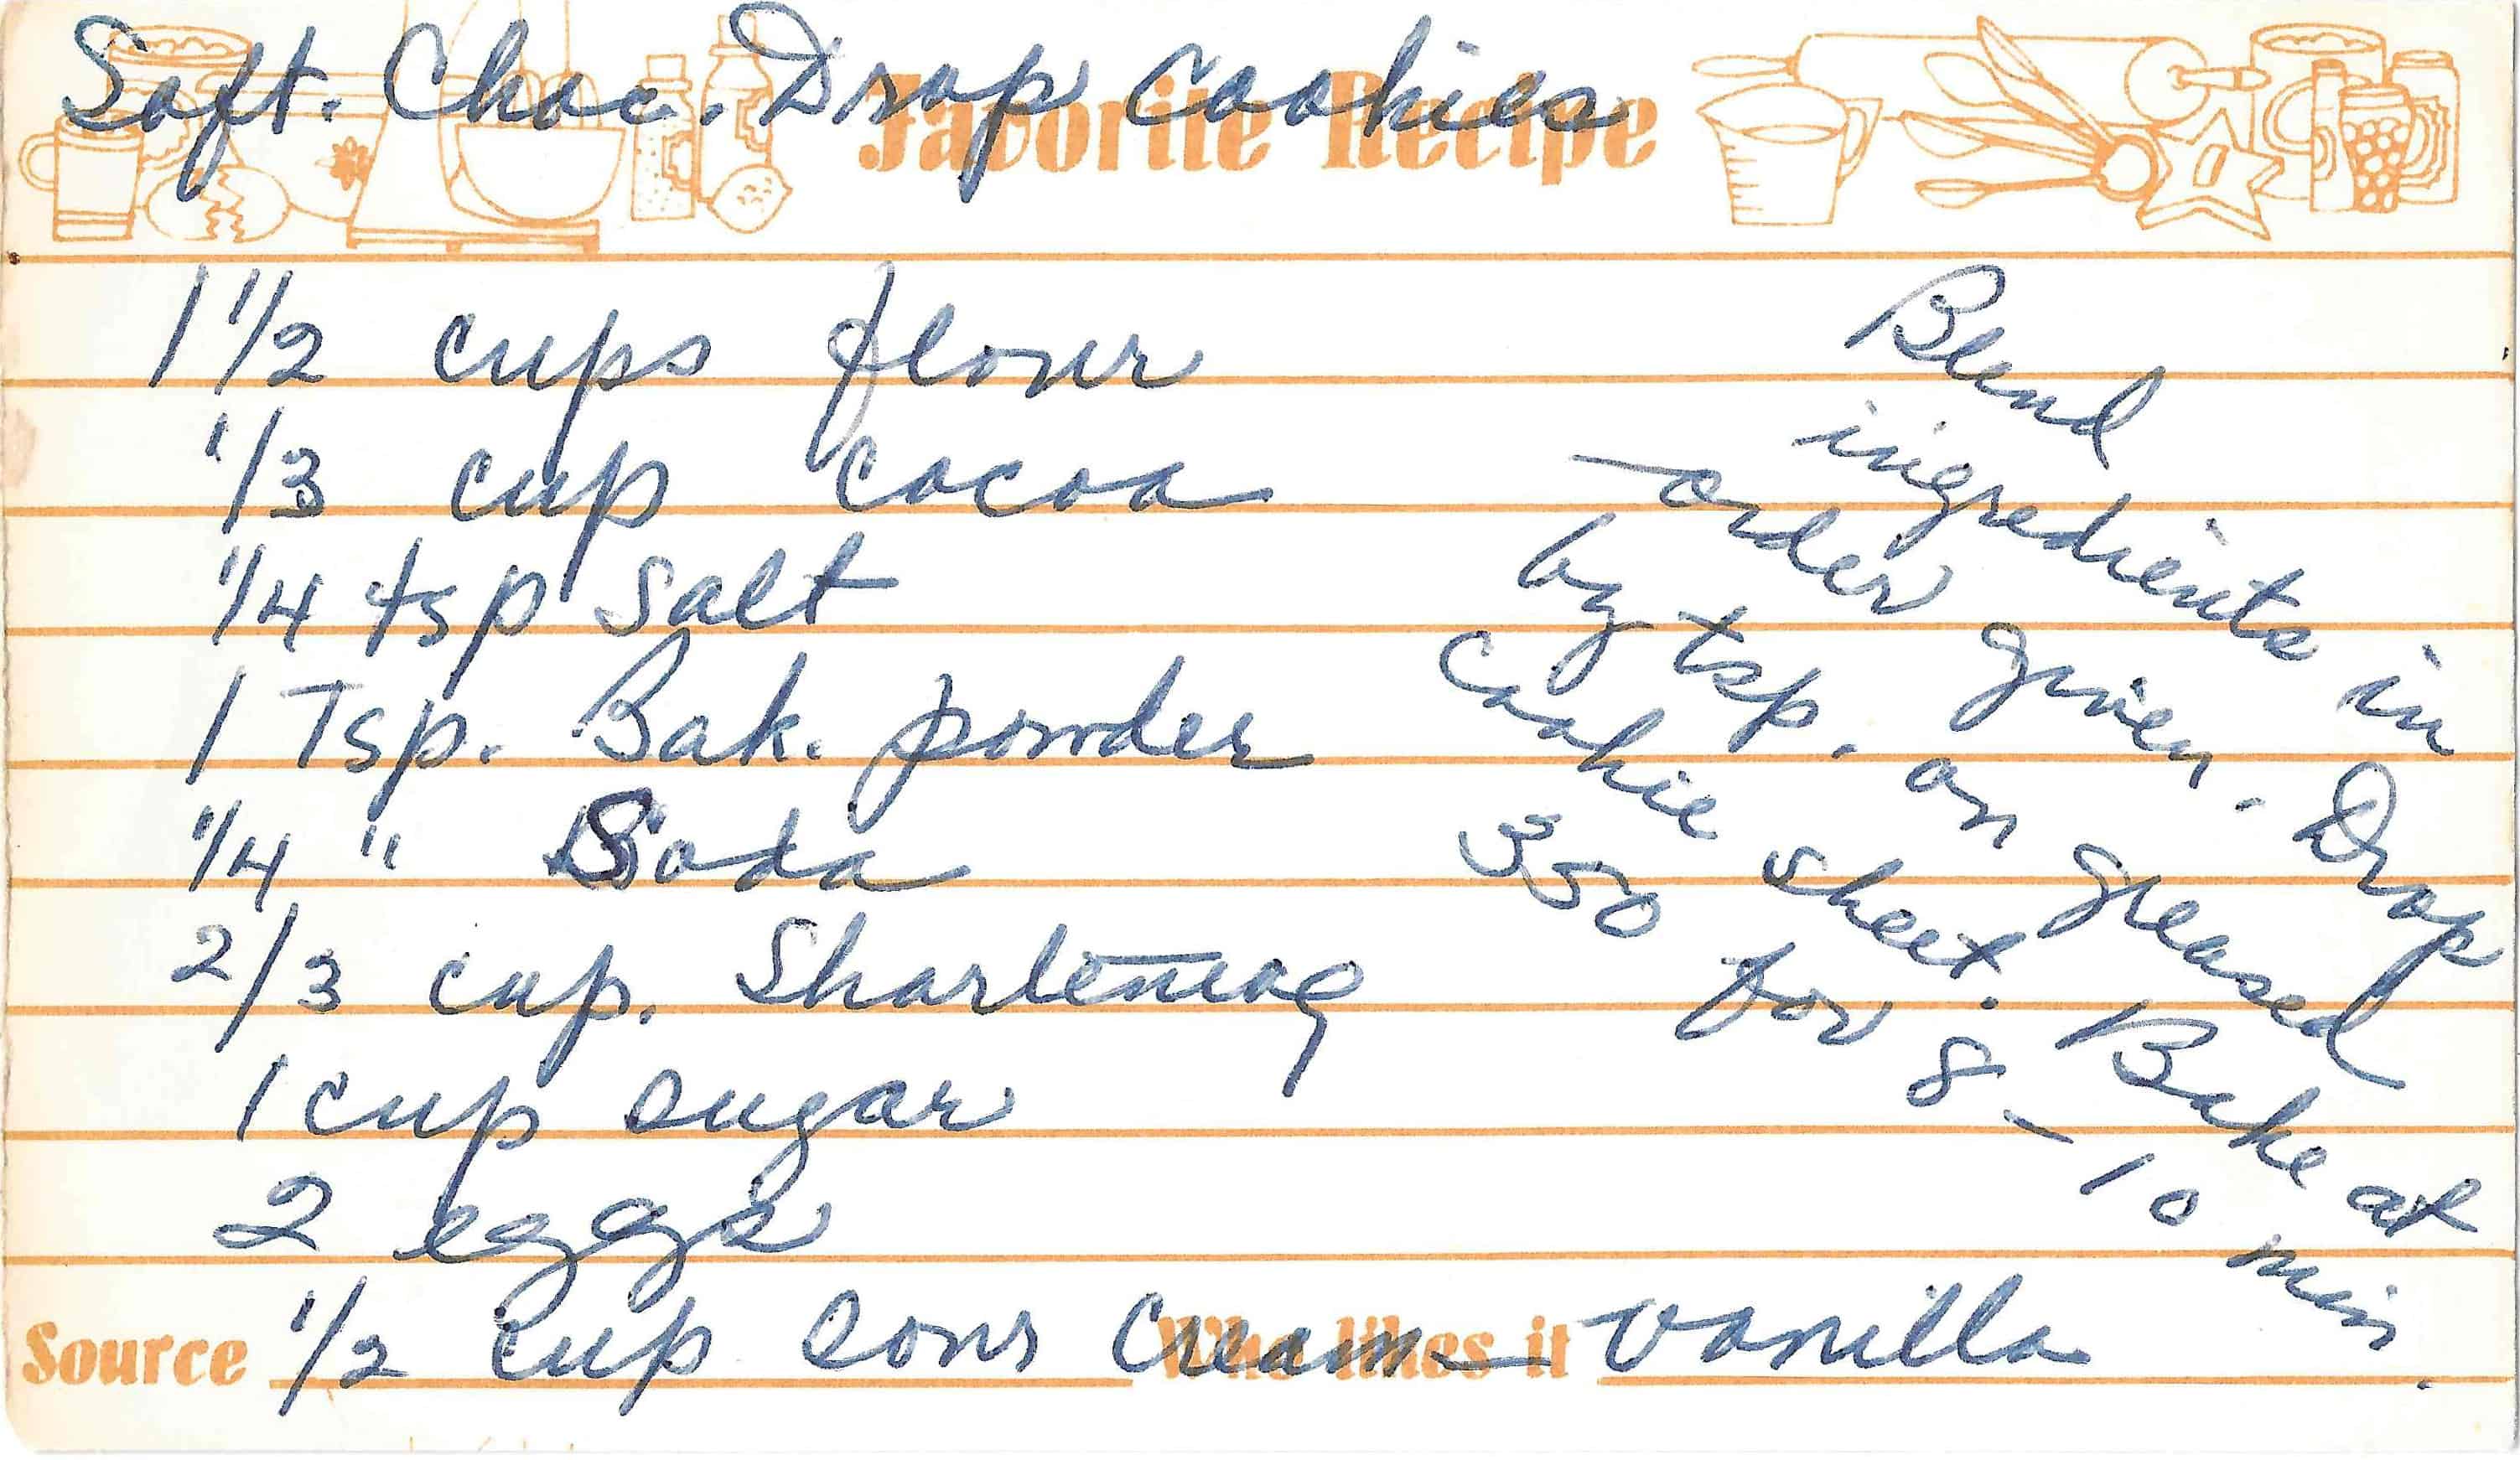 Soft. Choc. Drop Cookies
Favorite Recipe
1 1/2 cups flour
1/3 cup cocoa
1/4 tsp salt
1 Tsp. Bak. powder
1/4 " Soda
2/3 cup. Shortening
1 cup sugar
2 eggs
Source 1/2 cup sour cream — vanilla
Who likes it
Blend
ingredients in
— order given. Drop
by tsp. on greased
cookie sheet. Bake at
350 for 8 - 10 min.